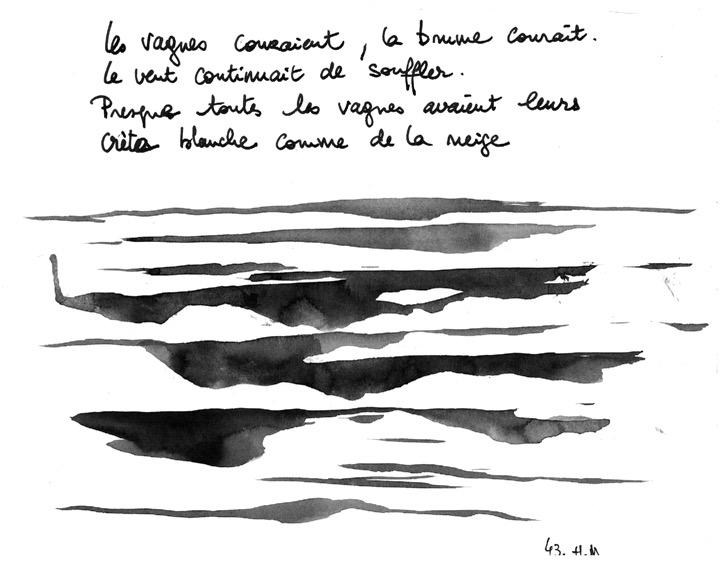 les vagues couraient, la brume courait.
le vent continuait de souffler.
Presque toutes les vagues avaient leurs
crêtes blanche comme de la neige
43. H.M